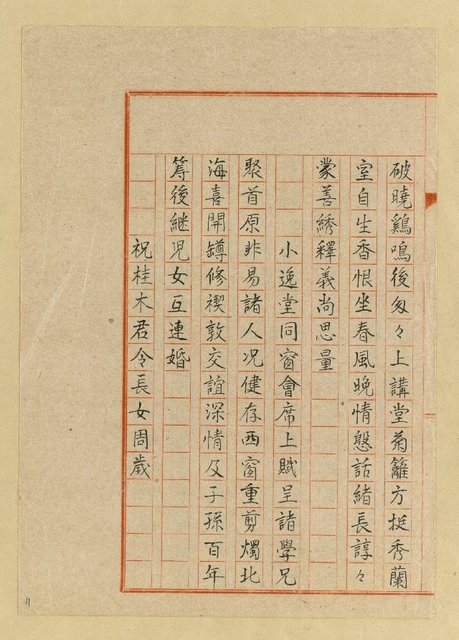 破曉鷄鳴後匆々上講堂菊籬方挺秀蘭
室自生香恨坐春風晚情慇話緒長諄々
蒙善綉釋義尚思量
小逸堂同窗會席上賦呈諸學兄
聚首原非易諸人况健存西窗重剪燭北
海喜開罇修禊敦交誼深情及子孫百年
籌後継児女互連婚
祝桂木君令長女周歲
11